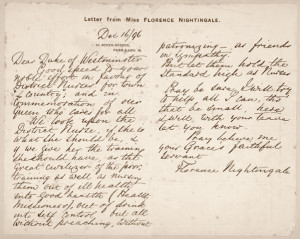 Letter from Miss FLORENCE NIGHTINGALE.
Dec 16/96
Dear Duke of Westminster
Good speed to your
noble effort in favour of
District Nurses for town
& Country; and in
Commemoration of our
Queen who cares for all.
We look upon the
District Nurse, if she is
what she should be, &
if we give her the training
she should have, as the
great civilizer of the poor,
training as well as nursing
them out of ill health
into good health (Health
Missioners), out of drink
into self control, but all
without preaching, without
patronizing — as friends
in sympathy.
But let them hold the
Standard high as Nurses
Pray be sure, I will try
to help all I can, tho'
that be small, here
I will, with your leave
let you know.
Pray believe me
your Grace's faithful
Servant
Florence Nightingale